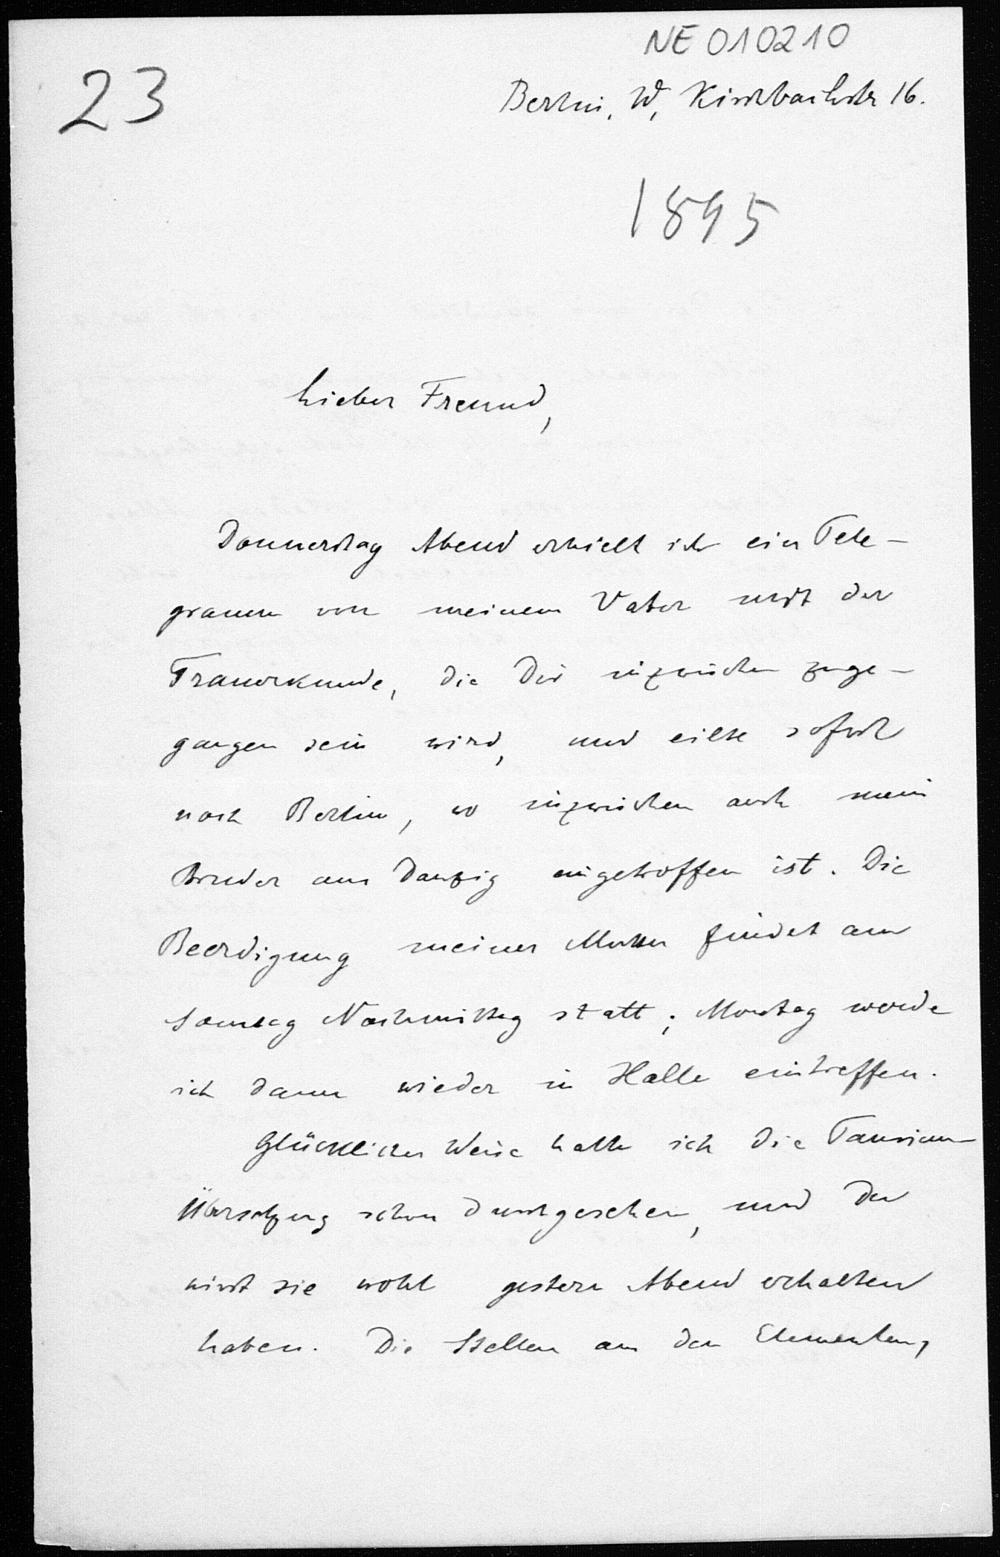 NE 010210
23
Berlin, W, Kirchbachstr 16.
1895
Lieber Freund,
Donnerstag Abend erhielt ich ein Tele-
gramm von meinem Vater mit der
Trauerkunde, die Dir inzwischen zuge-
gangen sein wird, und eilte sofort
nach Berlin, wo inzwischen auch mein
Bruder aus Danzig eingetroffen ist. Die
Beerdigung meiner Mutter findet am
Sonntag Nachmittag statt; Montag werde
ich dann wieder in Halle eintreffen.
Glücklicher Weise hatte ich die
Übersetzung schon durchgesehen, und Du
wirst sie wohl gestern Abend erhalten
haben. Die Stellen aus den Elementen,